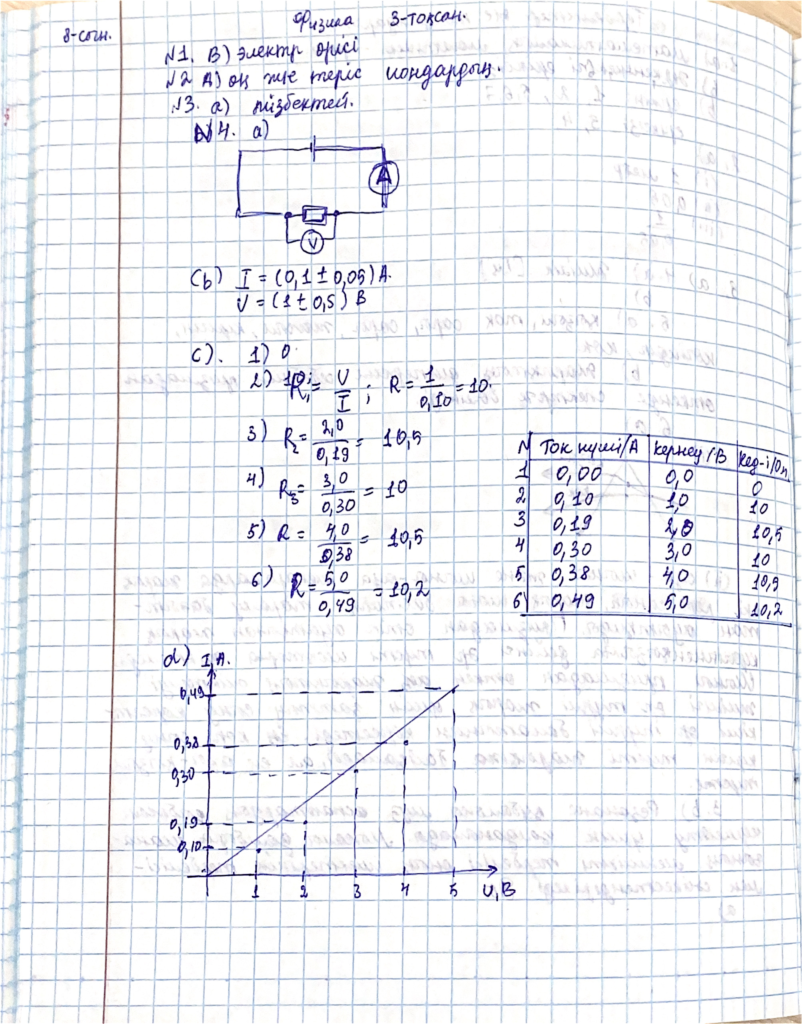 Физика 3-тоқсан.
8-сын.
№1. В) электр өрісі
№2 А) оң және теріс иондардың.
№3. а) тізбектей.
№4. а)
А
V
(b) I = (0,1 ± 0,05) А.
V = (1 ± 0,5) В
c). 1) 0.
2) R₁ = V/I ; R = 1/0,10 = 10.
3) R₂ = 2,0/0,19 = 10,5
4) R₃ = 3,0/0,30 = 10
5) R = 4,0/0,38 = 10,5
6) R = 5,0/0,49 = 10,2
N Ток күші/А Кернеу/В Кед-і/Ом
1 0,00 0,0 0
2 0,10 1,0 10
3 0,19 2,0 10,5
4 0,30 3,0 10
5 0,38 4,0 10,5
6 0,49 5,0 10,2
d) I, А.
0,49
0,38
0,30
0,19
0,10
1 2 3 4 5 U, В